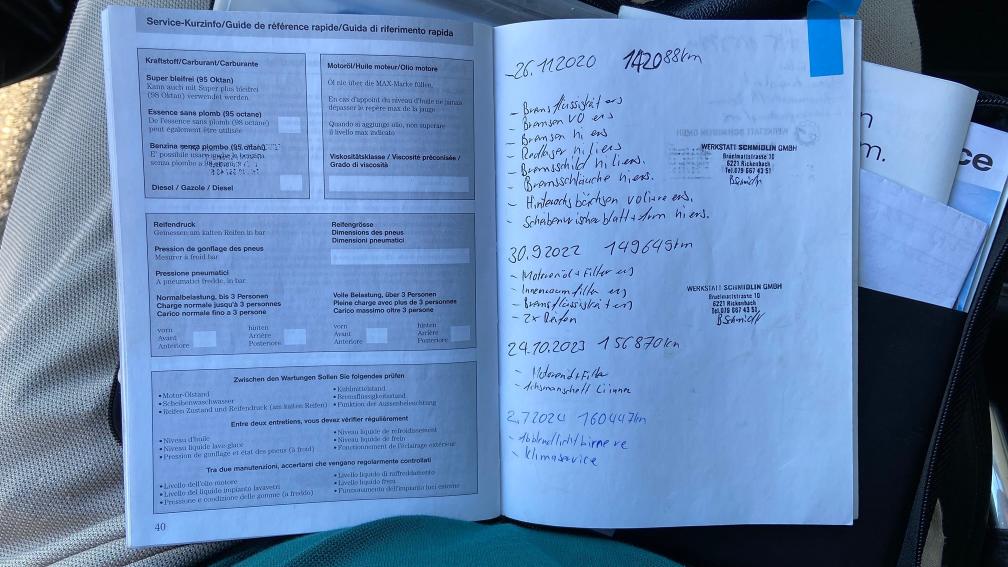 Service-Kurzinfo/Guide de référence rapide/Guida di riferimento rapida
Kraftstoff/Carburant/Carburante
Super bleifrei (95 Oktan)
Kann auch mit Super plus bleifrei
(98 Oktan) verwendet werden.
Essence sans plomb (95 octane)
De l'essence sans plomb (98 octane)
peut également être utilisée
Benzina senza piombo (95 ottani)
Diesel / Gazole / Diesel
Motoröl/Huile moteur/Olio motore
Öl nie über die MAX-Marke füllen.
En cas d'appoint du niveau d'huile ne jamais
dépasser le repère max de la jauge
Quando si aggiunge olio, non superare
il livello max indicato
Viskositätsklasse / Viscosité préconisée /
Grado di viscosità
Reifendruck
Gemessen am kalten Reifen in bar
Pression de gonflage des pneus
Mesurer à froid bar
Pressione pneumatici
A pneumatici freddo, in bar
Reifengrösse
Dimensions des pneus
Dimensioni pneumatici
Normalbelastung, bis 3 Personen
Charge normale jusqu'à 3 personnes
Carico normale fino a 3 persone
vorn
Avant
Anteriore
hinten
Arrière
Posteriore
Volle Belastung, über 3 Personen
Pleine charge avec plus de 3 personnes
Carico massimo oltre 3 persone
vorn
Avant
Anteriore
hinten
Arrière
Posteriore
Zwischen den Wartungen Sollen Sie folgendes prüfen
• Motor-Ölstand
• Scheibenwaschwasser
• Reifen Zustand und Reifendruck (am kalten Reifen)
• Kühlmittelstand
• Bremsflüssigkeitsstand
• Funktion der Aussenbeleuchtung
Entre deux entretiens, vous devez vérifier régulièrement
• Niveau d'huile
• Niveau liquide lave-glace
• Pression de gonflage et état des pneus (à froid)
• Niveau liquide de refroidissement
• Niveau liquide de frein
• Fonctionnement de l'éclairage extérieur
Tra due manutenzioni, accertarsi che vengano regolarmente controllati
• Livello dell'olio motore
• Livello del liquido impianto lavavetri
• Pressione e condizione delle gomme (a freddo)
• Livello liquido di raffreddamento
• Livello liquido freni
• Funzionamento dell'impianto luci esterne
40
26.11.2020 142088km
- Bremsflüssigkät ers
- Bremsen VO ers
- Bremsen hi ers
- Radlager hi li ers
- Bremsschild hi li ers.
- Bremsschläuche hi ers.
- Hinterachsbüchsen vo li+re ers.
- Scheibenwischerblatt + Arm hi ers.
WERKSTATT SCHMIDLIN GMBH
Brüelmattstrasse 10
6221 Rickenbach
Tel.079 667 43 51
30.9.2022 149649km
- Motorenöl + Filter ers
- Innenraumfilter ers
- Bremsflüssigkät ers
- 2x Reifen
WERKSTATT SCHMIDLIN GMBH
Brüelmattstrasse 10
6221 Rickenbach
Tel.079 667 43 51
24.10.2023 156870km
- Motorenöl + Filter
- Achsmanschett li inner
2.7.2024 160447km
- Abblendlichtbirne re
- Klimaservice